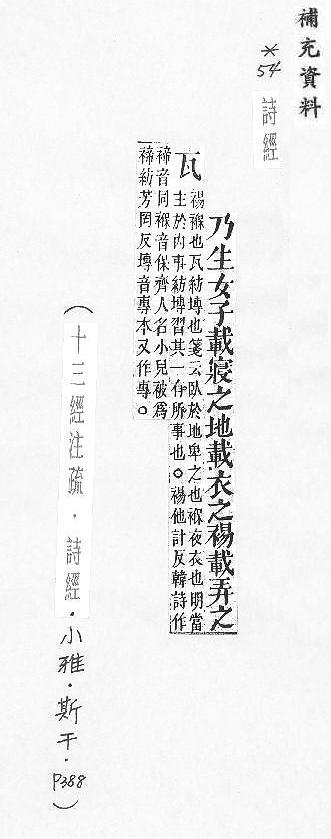 補充資料
*54 詩經
乃生女子載寢之地載衣之裼載弄之
瓦 裼褓也瓦紡塼也箋云臥於地卑之也褓夜衣也明當
主於內事紡塼習其一有所事也。裼他計反韓詩作
褅音同褓音保齊人名小兒被爲
褅紡芳罔反塼音專本又作專。
(十三經注疏.詩經.小雅.斯干.P388)